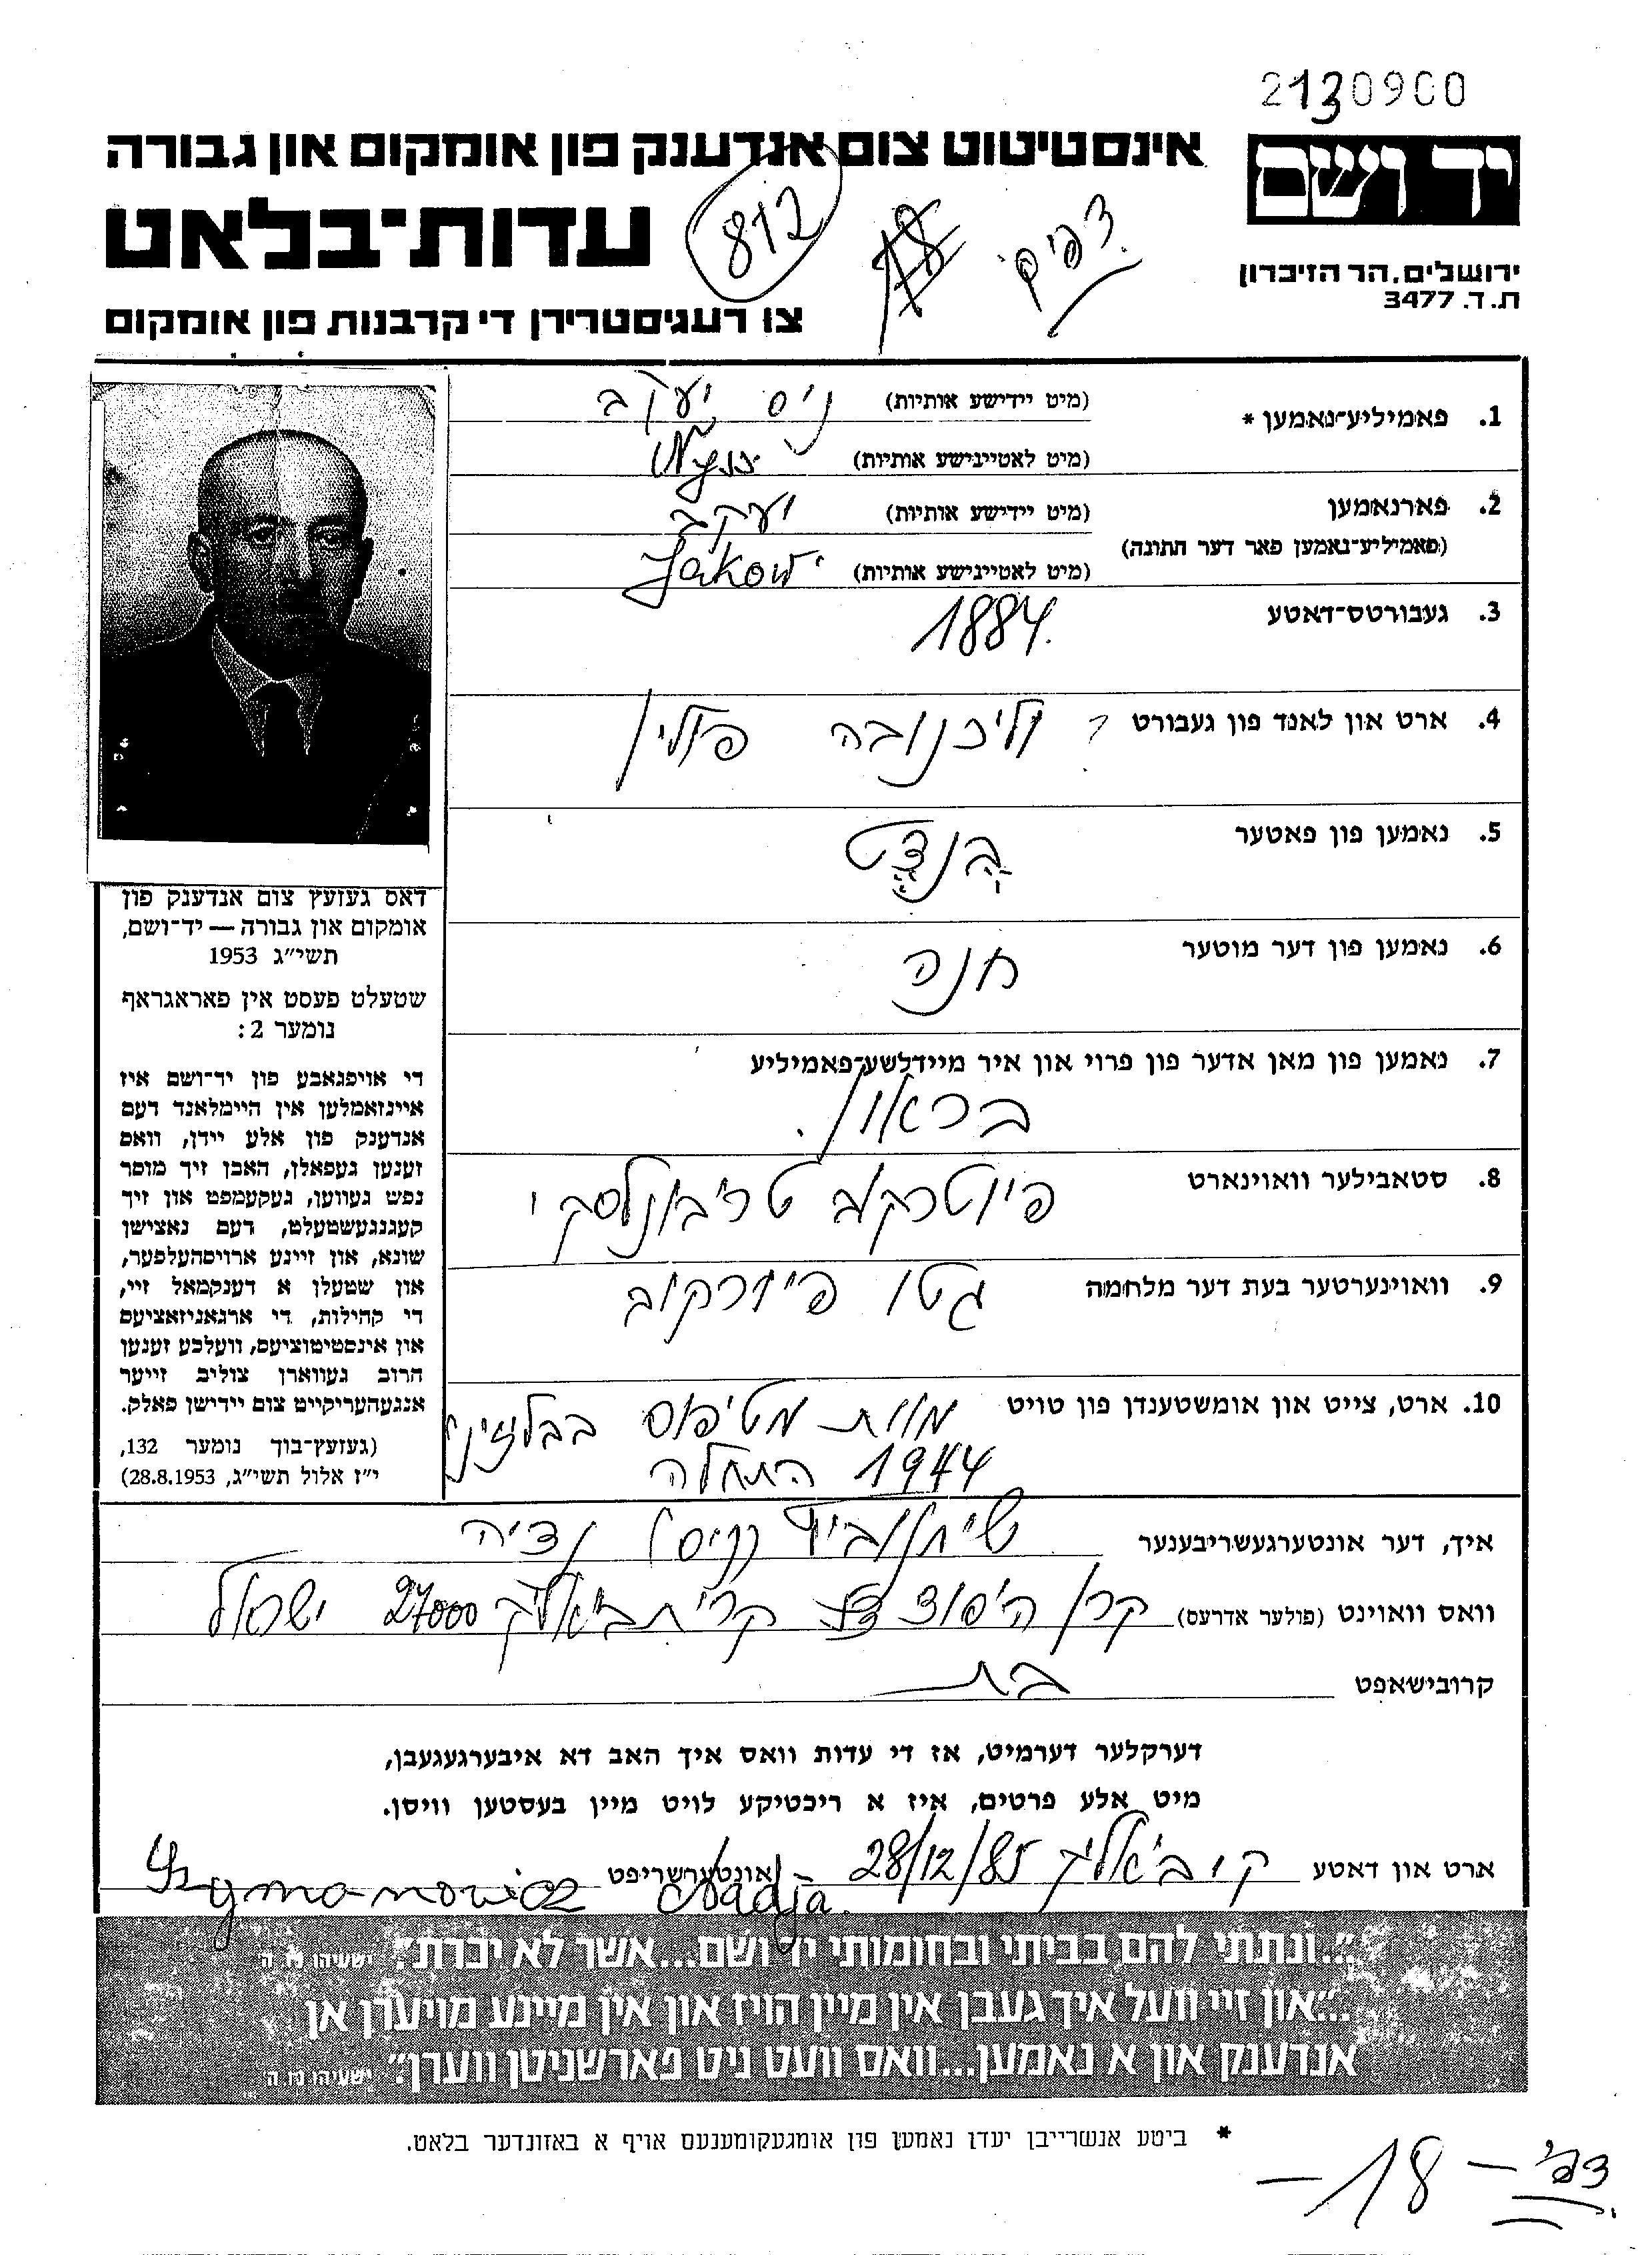 2130900
אינסטיטוט צום אנדענק פון אומקום און גבורה
יד ושם
עדות־בלאט
812
18
דפים
ירושלים, הר הזיכרון
ת. ד. 3477
צו רעגיסטרירן די קרבנות פון אומקום
1. פאַמיליע־נאָמען * (מיט יידישע אותיות) ניס יעקב
(מיט לאטייגישע אותיות)
2. פארנאמען (מיט יידישע אותיות) יעקב
(פאמיליע־נאמען פאר דער חתונה) (מיט לאטייגישע אותיות) Jakow
3. געבורטס־דאטע 1884.
4. ארט און לאנד פון געבורט פולין
5. נאמען פון פאטער
6. נאמען פון דער מוטער חנה
7. נאמען פון מאן אדער פון פרוי און איר מיידלשע־פאמיליע
בראון.
8. סטאבילער וואוינארט פיוטרקוב טריבונלסקי
9. וואוינערטער בעת דער מלחמה גטו פיורקוב
10. ארט, צייט און אומשטענדן פון טויט מוות מטיפוס
1944 התחלה
דאס געזעץ צום אנדענק פון
אומקום און גבורה — יד־ושם,
תשי״ג 1953
שטעלט פעסט אין פאראגראף
נומער 2:
די אויפגאבע פון יד־ושם איז
איינזאמלען אין היימלאנד דעם
אנדענק פון אלע יידן, וואס
זענען געפאלן, האבן זיך מוסר
נפש געווען, געקעמפט און זיך
קעגנגעשטעלט, דעם נאצישן
שונא, און זיינע ארויסהעלפער,
און שטעלן א דענקמאל זיי,
די קהילות, די ארגאניזאציעס
און אינסטיטוציעס, וועלכע זענען
חרוב געווארן צוליב זייער
אנגעהעריקייט צום יידישן פאלק.
(געזעץ־בוך נומער 132,
י״ז אלול תשי״ג, 28.8.1953)
איך, דער אונטערגעשריבענער שימנוביץ (ניס) נדיה
וואס וואוינט (פולער אדרעס) קרן היסוד קרית ביאליק 27000 ישראל
קרובישאפט בת
דערקלער דערמיט, אז די עדות וואס איך האב דא איבערגעגעבן,
מיט אלע פרטים, איז א ריכטיקע לויט מיין בעסטען וויסן.
ארט און דאטע ק. ביאליק 28/12/85 אונטערשריפט Szymanowicz Nadja.
״...ונתתי להם בביתי ובחומותי יד ושם...אשר לא יכרת״. ישעיהו נו, ה
״...און זיי וועל איך געבן אין מיין הויז און אין מיינע מויערן אן
אנדענק און א נאמען...וואס וועט ניט פארשניטן ווערן״. ישעיהו נו, ה
* ביטע אנשרייבן יעדן נאמען פון אומגעקומענעם אויף א באזונדער בלאט.
דפי – 18 –